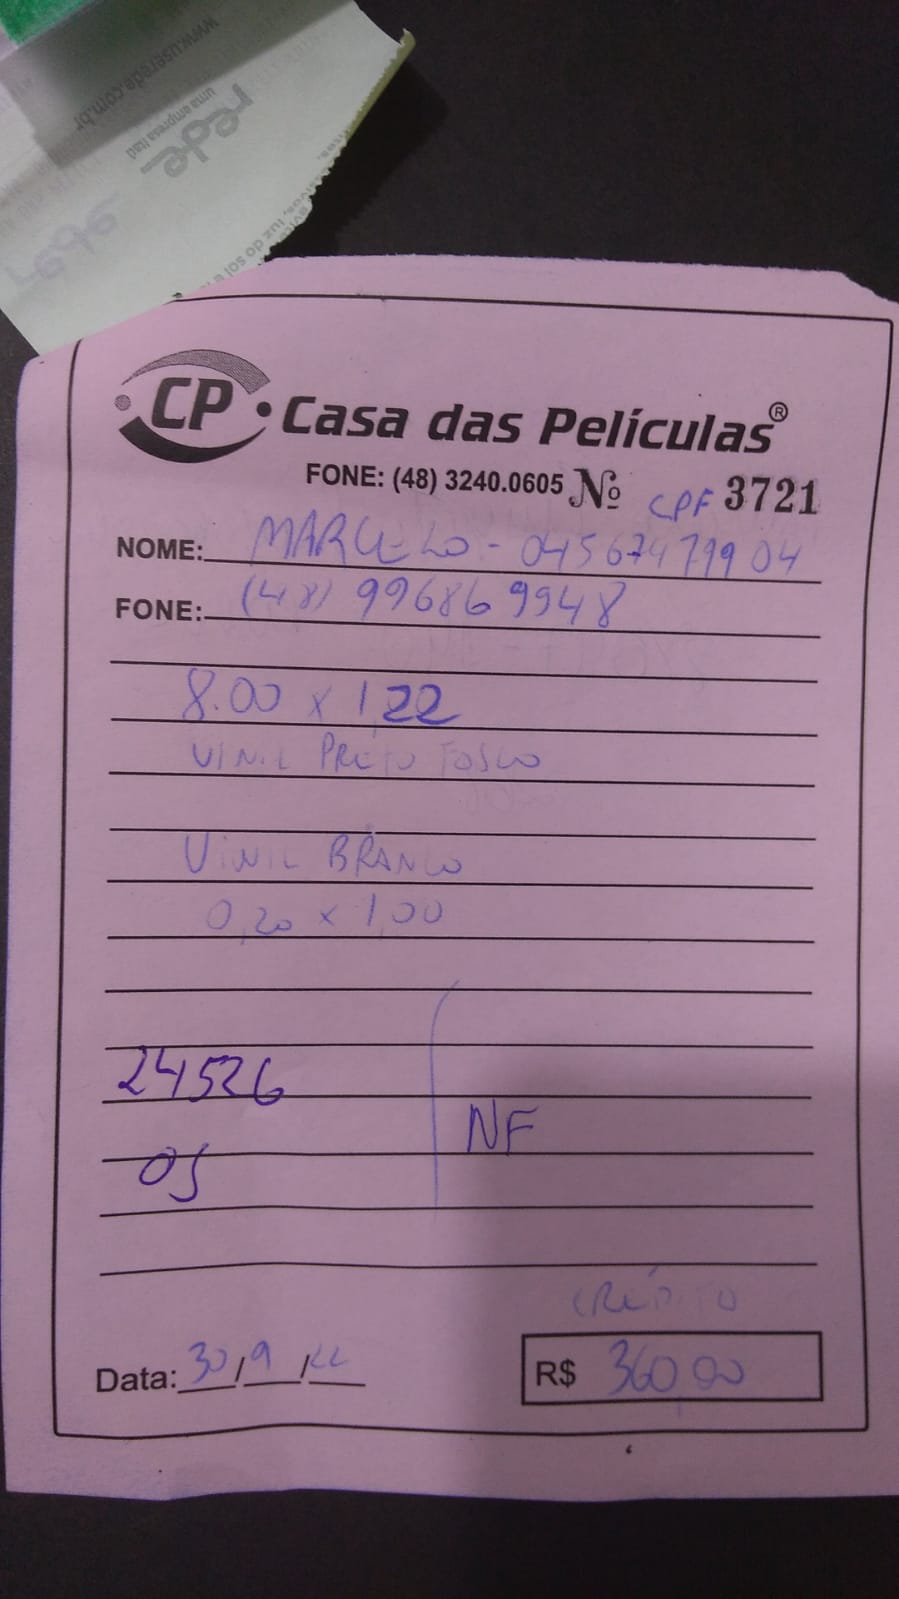 www.userede.com.br
uma empresa Itaú
rede
rede
luz do sol e
CP Casa das Películas®
FONE: (48) 3240.0605 Nº 3721
CPF
NOME: MARCELO - 04567479904
FONE: (48) 996869948
8.00 x 1,22
VINIL PRETO FOSCO
VINIL BRANCO
0,20 x 1,00
24526
NF
OS
CRÉDITO
Data: 30/9/22
R$ 360,00